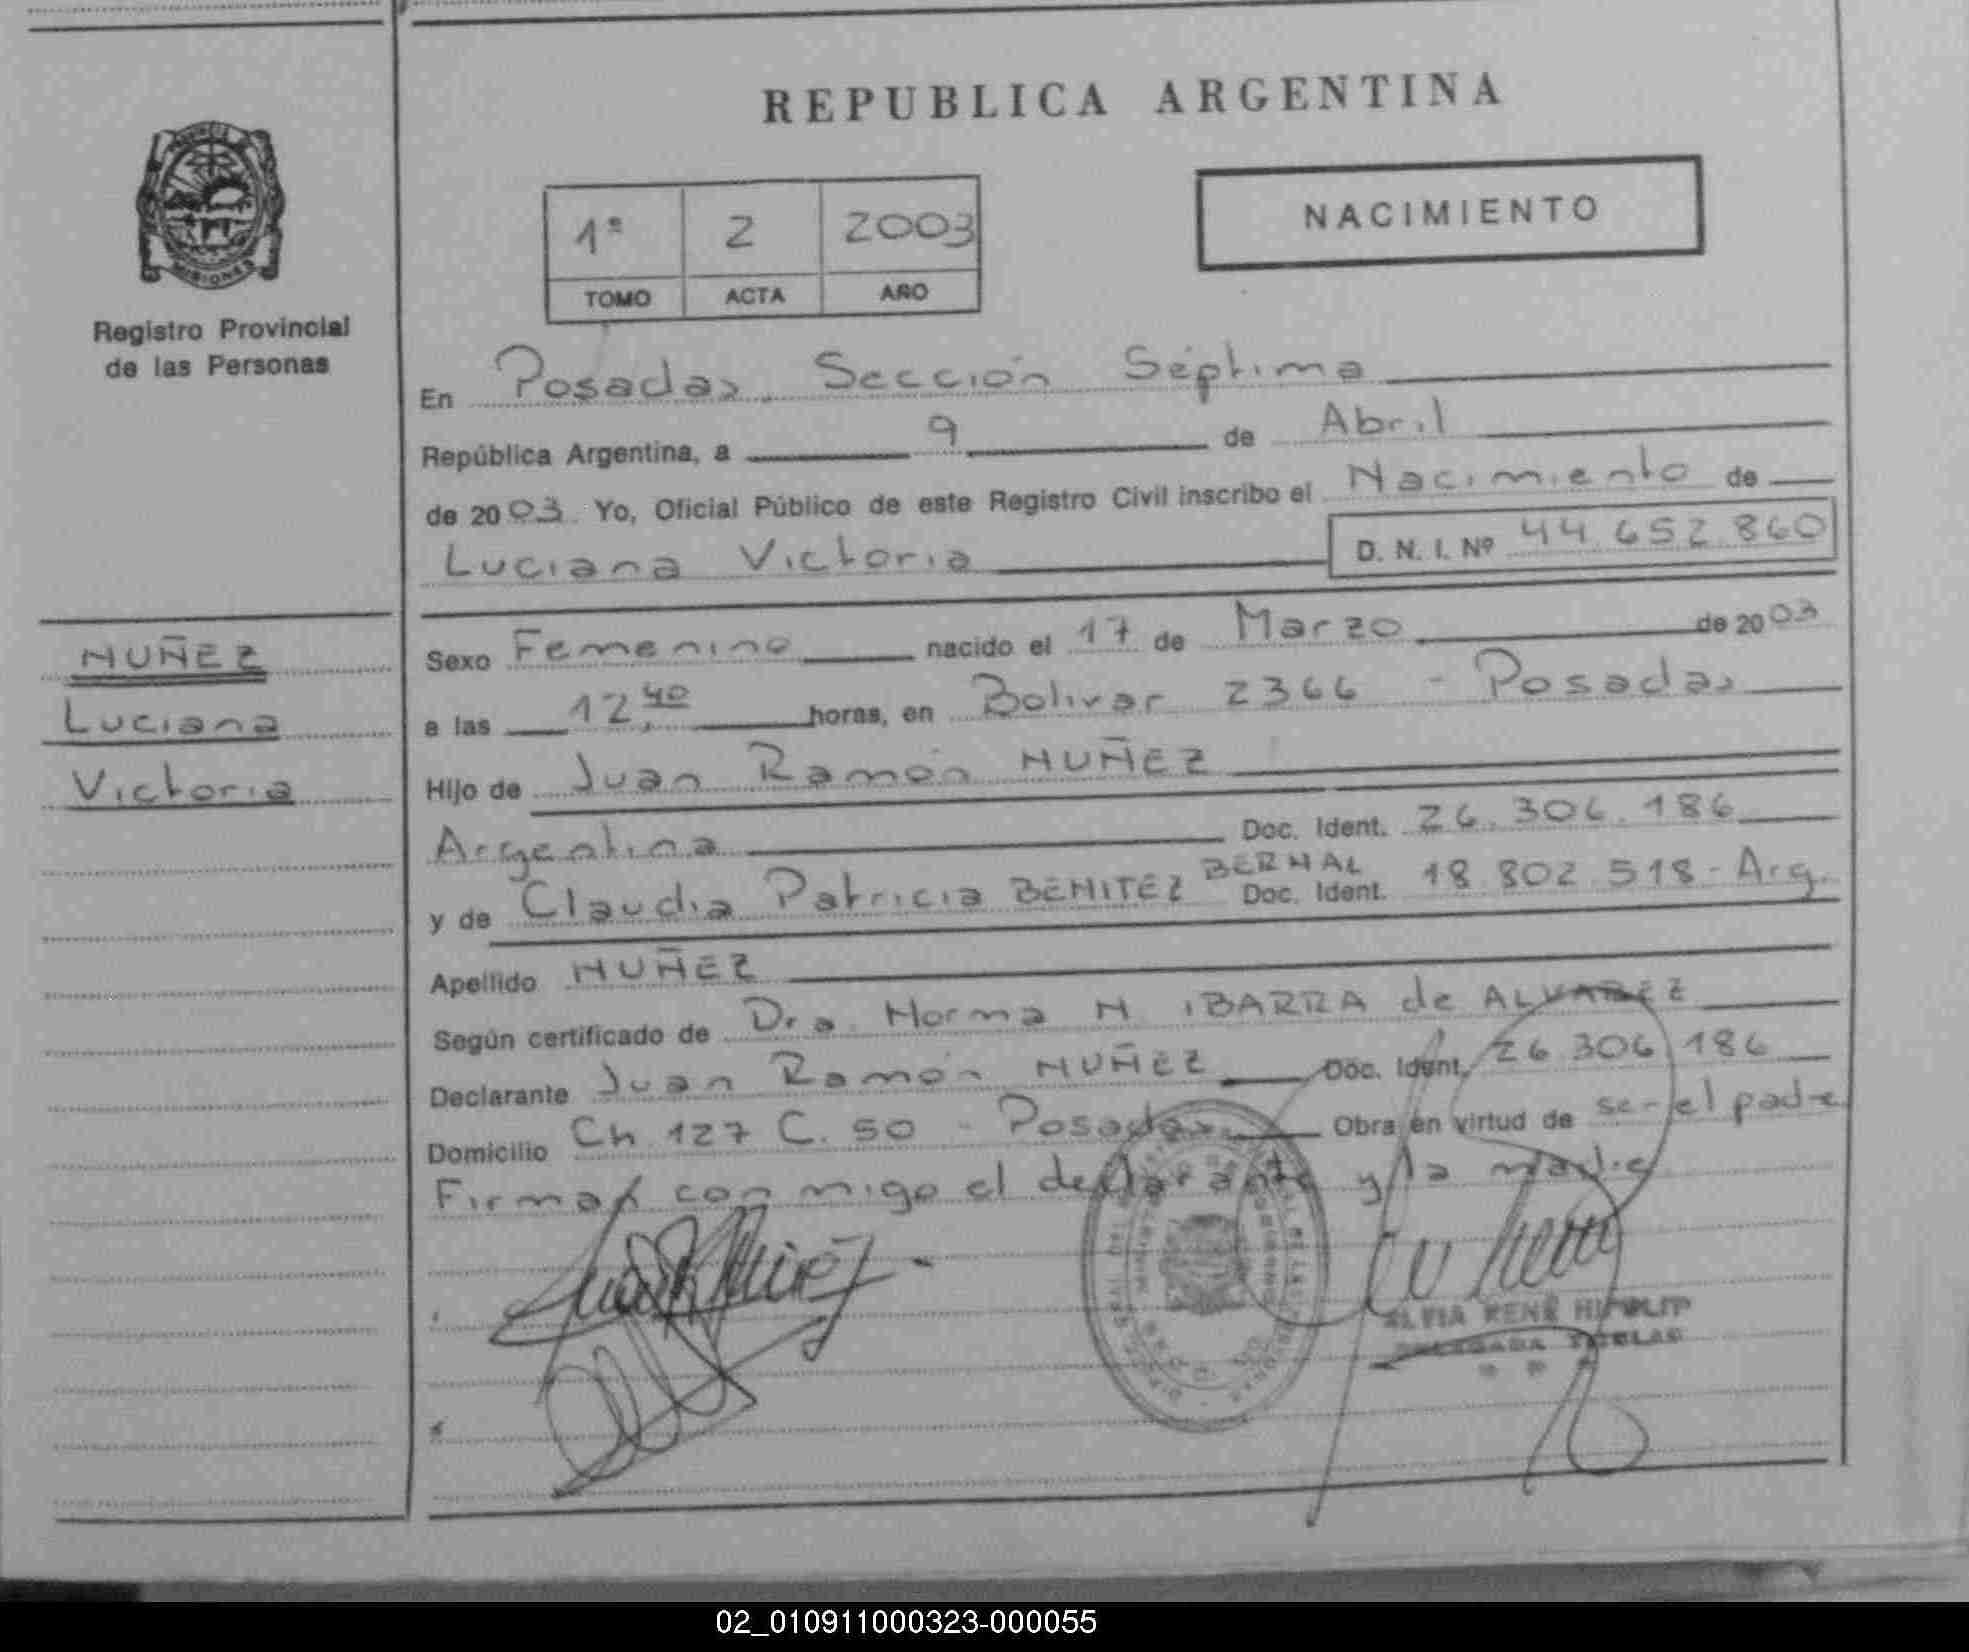 REPUBLICA ARGENTINA
MISIONES
Registro Provincial
de las Personas
1º 2 2003
TOMO ACTA AÑO
NACIMIENTO
En Posadas, Sección Séptima
República Argentina, a 9 de Abril
de 2003. Yo, Oficial Público de este Registro Civil inscribo el Nacimiento de
Luciana Victoria D. N. I. Nº 44.652.860
NUÑEZ
Luciana
Victoria
Sexo Femenino nacido el 17 de Marzo de 2003
a las 12,40 horas, en Bolivar 2366 - Posadas
Hijo de Juan Ramón NUÑEZ
Argentina Doc. Ident. 26.306.186
y de Claudia Patricia BENITEZ BERNAL Doc. Ident. 18.802.518-Arg.
Apellido NUÑEZ
Según certificado de Dra. Norma N. IBARRA de ALVAREZ
Declarante Juan Ramón NUÑEZ Doc. Ident. 26.306.186
Domicilio Ch 127 C. 50 - Posadas Obra en virtud de ser el padre
Firman conmigo el declarante y la madre
RENÉ
TITULAR
02_010911000323-000055